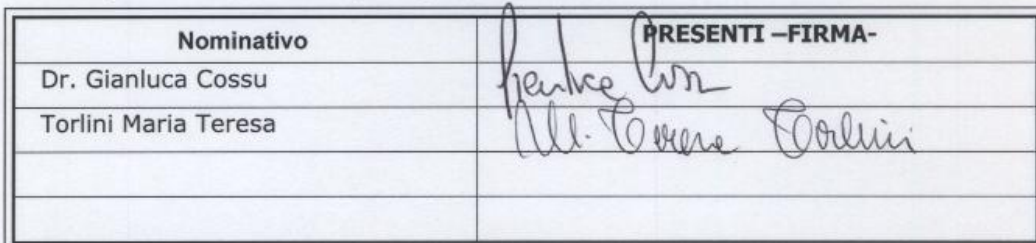 Nominativo PRESENTI –FIRMA-
Dr. Gianluca Cossu Gianluca Cossu
Torlini Maria Teresa M. Teresa Torlini